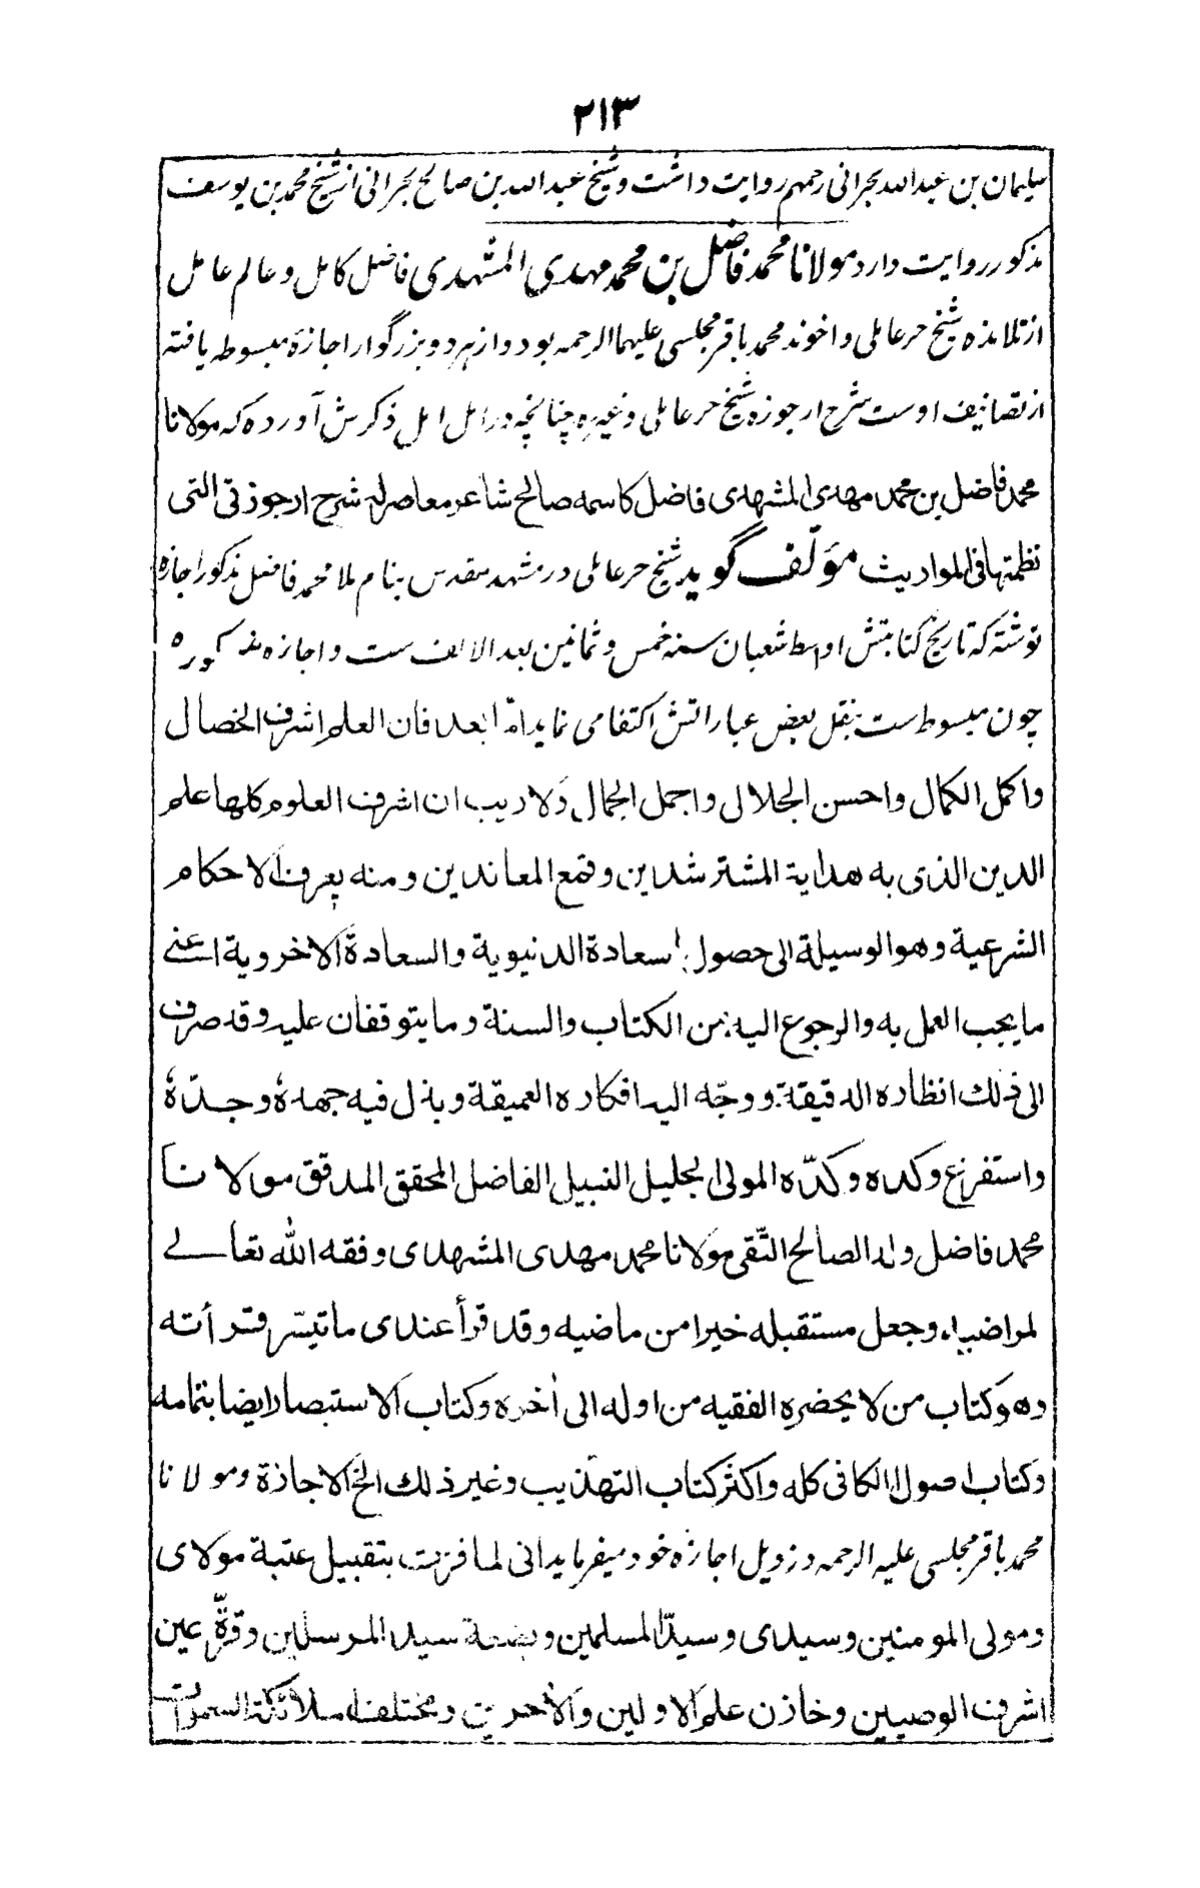 ٢١٣
سلیمان بن عبدالله بحرانی رحمهم روایت داشت و شیخ عبدالله بن صالح بحرانی از شیخ محمد بن یوسف
مذکور روایت دارد مولانا محمد فاضل بن محمد مهدی المشهدی فاضل کامل و عالم عامل
از تلامذه شیخ حر عاملی و اخوند محمد باقر مجلسی علیهما الرحمه بود و از هر دو بزرگوار اجازهٔ مبسوطه یافته
از تصانیف اوست شرح ارجوزه شیخ حر عاملی و غیره چنانچه در امل امل ذکرش آورده که مولانا
محمد فاضل بن محمد مهدی المشهدی فاضل کاسمه صالح شاعر معاصر له شرح ارجوزتی التی
نظمتها فی المواریث مؤلّف گوید شیخ حر عاملی در مشهد مقدس بنام ملا محمد فاضل مذکور اجازه
نوشته که تاریخ کتابتش اوسط شعبان سنه خمس و ثمانین بعد الالف ست و اجازه مذکوره
چون مبسوط ست بنقل بعض عباراتش اکتفا می نماید امّا بعد فان العلم اشرف الخصال
واکمل الکمال واحسن الجلال واجمل الجمال وَلاریب ان اشرف العلوم کلها علم
الدین الذی به هدایة المشترشدین وقمع المعاندین ومنه یعرف الاحکام
الشرعیة وهو الوسیلة الی حصول السعادة الدنیویة والسعادة الاخرویة اعنے
ما یجب العمل به والرجوع الیه من الکتاب والسنة وما یتوقفان علیه وقد صرف
الی ذلك انظاره الدقیقة ووجّه الیه افکاره العمیقة وبذل فیه جهدهٗ وجدّهٗ
واستفرغ وکده وکدّه المولی الجلیل النبیل الفاضل المحقق المدقق مولانا
محمد فاضل ولد الصالح التّقی مولانا محمد مهدی المشهدی وفقه الله تعالے
لمراضیه وجعل مستقبله خیرا من ماضیه وقد قرأ عندی ما تیسّر قرأته
وهو کتاب من لا یحضره الفقیه من اوله الی اٰخره وکتاب الاستبصار ایضا بتمامه
وکتاب اصول الکافی کله واکثر کتاب التهذیب وغیر ذلك الخ الاجازة ومولانا
محمد باقر مجلسی علیه الرحمه در ذیل اجازه خود میفرماید انی لما فزت بتقبیل عتبة مولای
ومولی المومنین وسیدی وسیّد المسلمین وبضعة سید المرسلین وقرّة عین
اشرف الوصیین وخازن علم الاولین والاٰخرین ومختلف ملائکة السموات